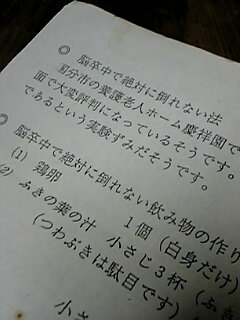 ◎ 脳卒中で絶対に倒れない法
国分市の養護老人ホーム慶祥園で
面で大変評判になっているそうです。
であるという実験ずみだそうです。
◎ 脳卒中で絶対に倒れない飲み物の作り
(1) 鶏卵 1個(白身だけ)
(2) ふきの葉の汁 小さじ3杯(ふき
(つわぶきは駄目です)
小さ